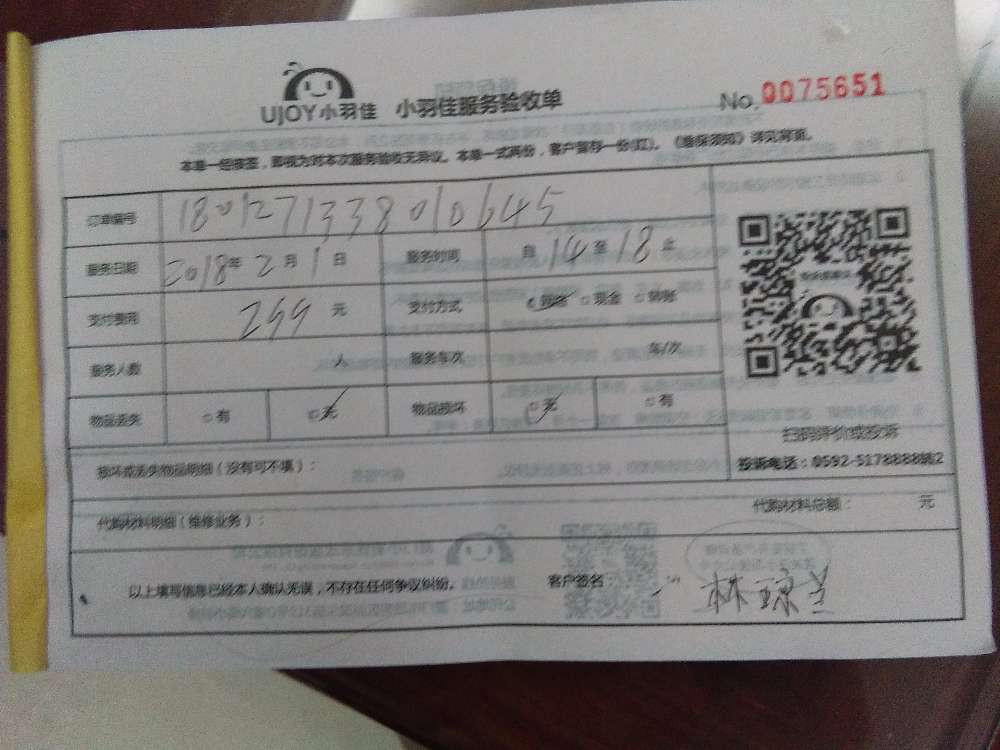 UJOY小羽佳 小羽佳服务验收单 No. 0075651
本单一经接签,即视为对本次服务验收无异议。本单一式两份,客户留存一份(红)。《维保须知》详见背面。
订单编号 180127133801 0645
服务日期 2018年2月1日 服务时间 自14至18止
支付费用 299元 支付方式 网络 □现金 □转账
服务人数 人 服务车次 车/次
物品丢失 □有 □无 物品损坏 □无 □有
扫码评价或投诉
损坏或丢失物品明细(没有可不填): 投诉电话:0592-5178888转2
代购材料明细(维修业务): 代购材料总额: 元
以上填写信息已经本人确认无误,不存在任何争议纠纷。 客户签名: 林琼兰